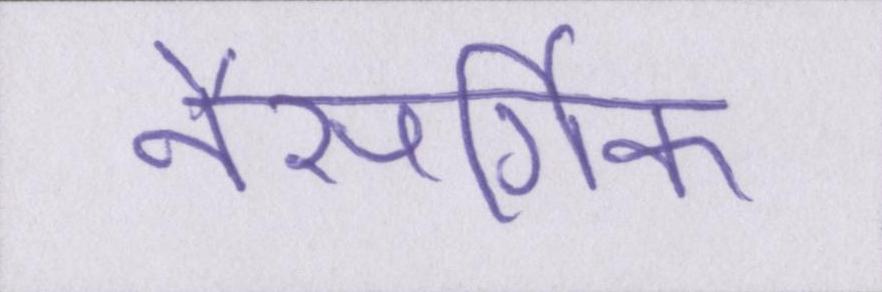 नैसर्गिक